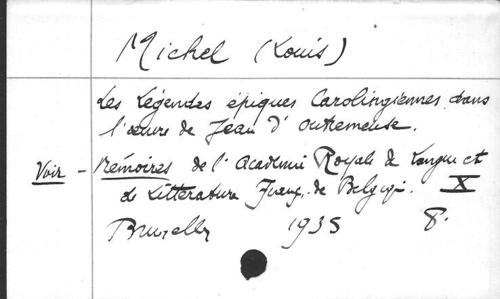 Michel (Louis)
Les Légendes épiques Carolingiennes dans
l'œuvre de Jean d'Outremeuse.
Voir - Mémoires de l'Académie Royale de Langue et
de Littérature Franç. de Belgique. X
Bruxelles 1935 8.